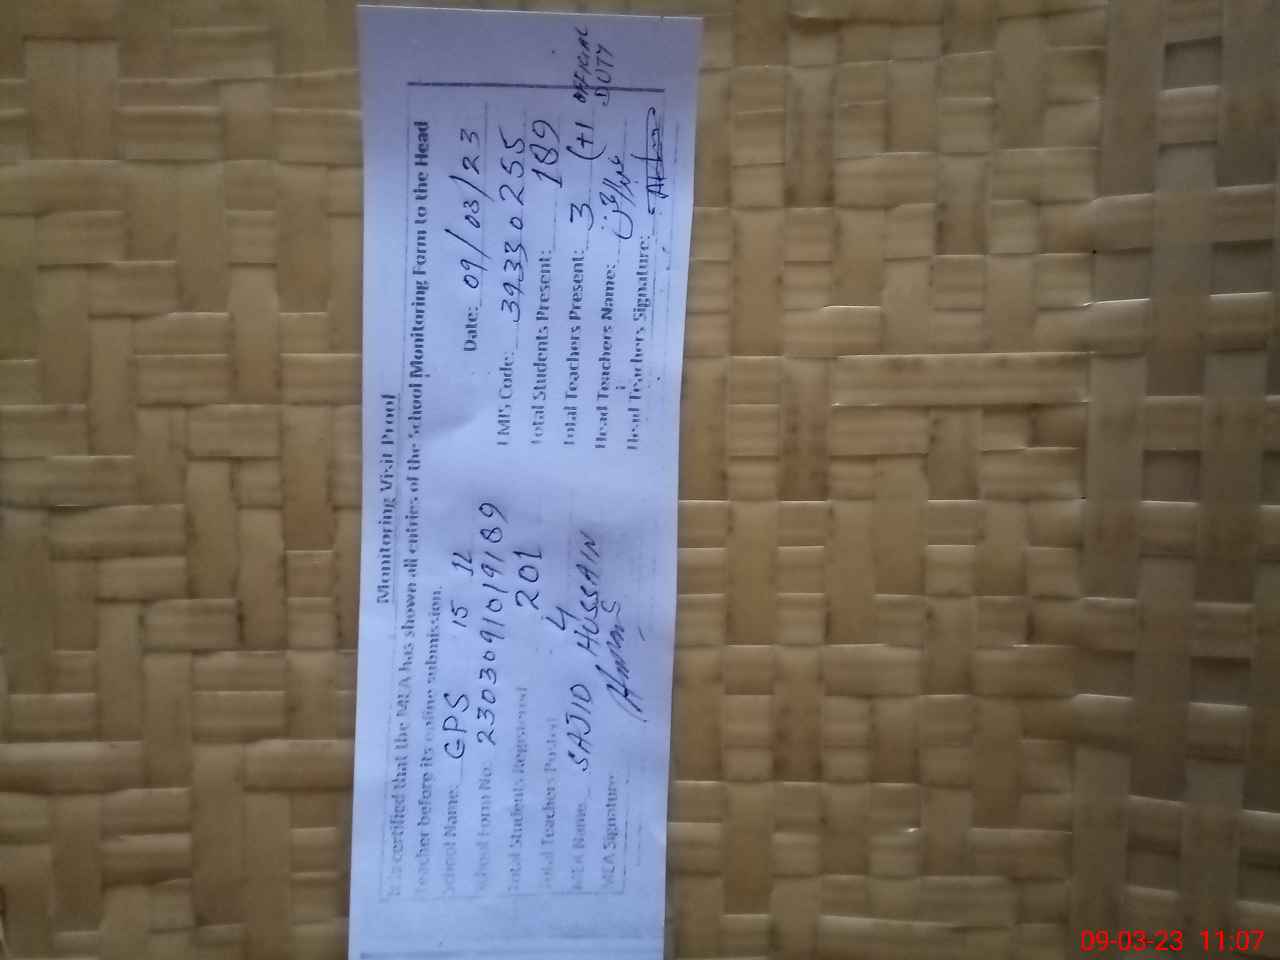 Monitoring Visit Proof
It is certified that the MEA has shown all entries of the School Monitoring Form to the Head
Teacher before its online submission.
School Name: GPS 15 1L Date: 09/03/23
School Form No. 230309101919189 EMIS Code: 39330255
Total Students Registered 201 Total Students Present: 189
Total Teachers Posted 4 Total Teachers Present: 3 (+1 OFFICIAL DUTY
MEA Name: SAJID HUSSAIN Head Teachers Name:
MEA Signature: Head Teachers Signature:
09-03-23 11:07